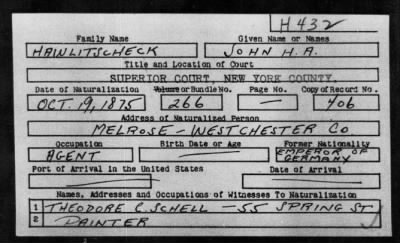 H432
Family Name Given Name or Names
HAWLITSCHECK JOHN H.A.
Title and Location of Court
SUPERIOR COURT, NEW YORK COUNTY.
Date of Naturalization Volume or Bundle No. Page No. Copy of Record No.
OCT. 19, 1875 266 — 406
Address of Naturalized Person
MELROSE - WESTCHESTER CO
Occupation Birth Date or Age Former Nationality
AGENT — EMPEROR OF
GERMANY
Port of Arrival in the United States Date of Arrival
— —
Names, Addresses and Occupations of Witnesses To Naturalization
1 THEODORE C SCHELL - 55 SPRING ST
2 PAINTER